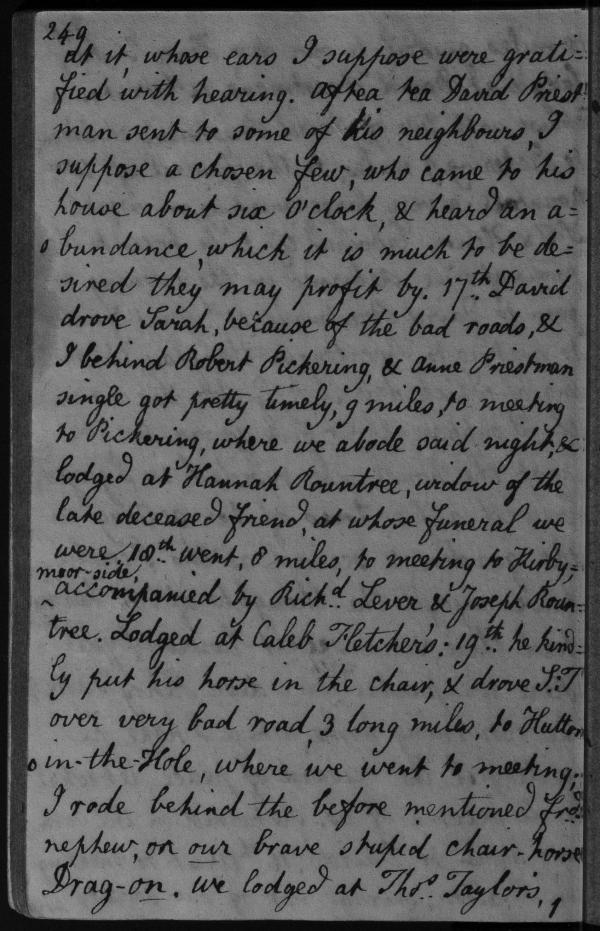 249
at it, whose ears I suppose were grati=
fied with hearing. After tea David Priest
man sent to some of his neighbours, I
suppose a chosen few, who came to his
house about six O'clock, & heard an a=
bundance, which it is much to be de=
sired they may profit by. 17th. David
drove Sarah, because of the bad roads, &
I behind Robert Pickering, & Anne Priestman
single got pretty timely, 9 miles, to meeting
to Pickering, where we abode said night, &
lodged at Hannah Rountree, widow of the
late deceased friend, at whose funeral we
were. 18th. went, 8 miles, to meeting to Kirby,=
moor-side,
accompanied by Richd. Lever & Joseph Roun=
tree. Lodged at Caleb Fletcher's: 19th. he kind=
ly put his horse in the chair, & drove S:T
over very bad road, 3 long miles, to Hutton
in-the-Hole, where we went to meeting.
I rode behind the before mentioned frds.
nephew, on our brave stupid chair-horse
Drag-on. we lodged at Thos. Taylor's,